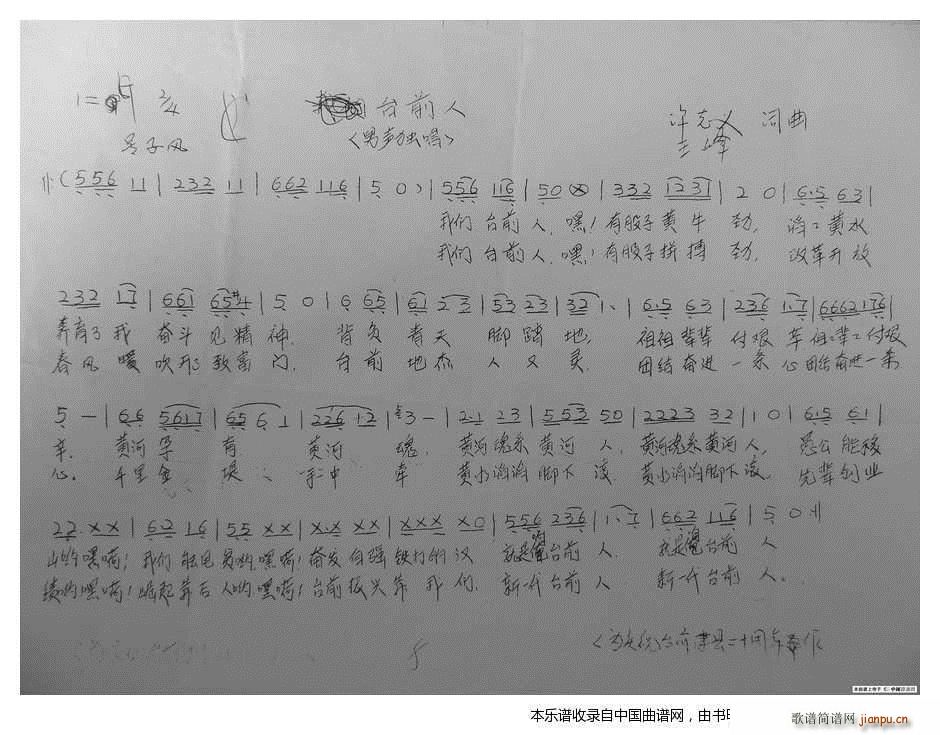 2/4 台前人
号子风 <男声独唱> 许志义 词曲
||:(556 11 | 232 11 | 662 116 | 5 0) | 556 116 | 50 ⊗ | 332 1231 | 2 0 | 6·5 63 |
我们 台前人, 嘿! 有股子黄牛 劲, 黄水
我们 台前人, 嘿! 有股子拼搏 劲, 改革开放
232 17 | 661 65#4 | 5 0 | 6 65 | 61 23 | 53 23 | 32 1· | 6·5 63 | 236 1·7 | 6662176 |
养育了我 奋斗 见精神. 背负 青天 脚踏地, 祖祖辈辈 付艰
春风 暖 吹形 致富门. 台前 地杰 人又灵, 团结奋进 一条心 团结奋进一条
5 — | 66 5617 | 65 6 1 | 226 12 | 3 — | 2·1 23 | 553 50 | 2223 32 | 1 0 | 6·5 61 |
辛. 黄河孕 育 黄河 魂. 黄河魂系黄河 人, 黄河魂系黄河人, 愚公能移
心. 千里金 堤 手中 牵 黄水滔滔 脚下 滚. 黄水滔滔脚下滚, 先辈创业
22 XX | 62 16 | 55 XX | X·X XX | XXX X0 | 556 236 | 1·7 | 662 116 | 5 0 :||
山哟嘿嗬! 我们 能 嘿嗬! 奋发自强铁打的汉 就是俺台前 人. 就是俺台前 人
绩哟嘿嗬! 靠后 人哟,嘿嗬! 台前振兴靠 我们, 新一代台前人 新一代台前 人.
本乐谱收录自中国曲谱网，由书
歌谱简谱网 jianpu.cn